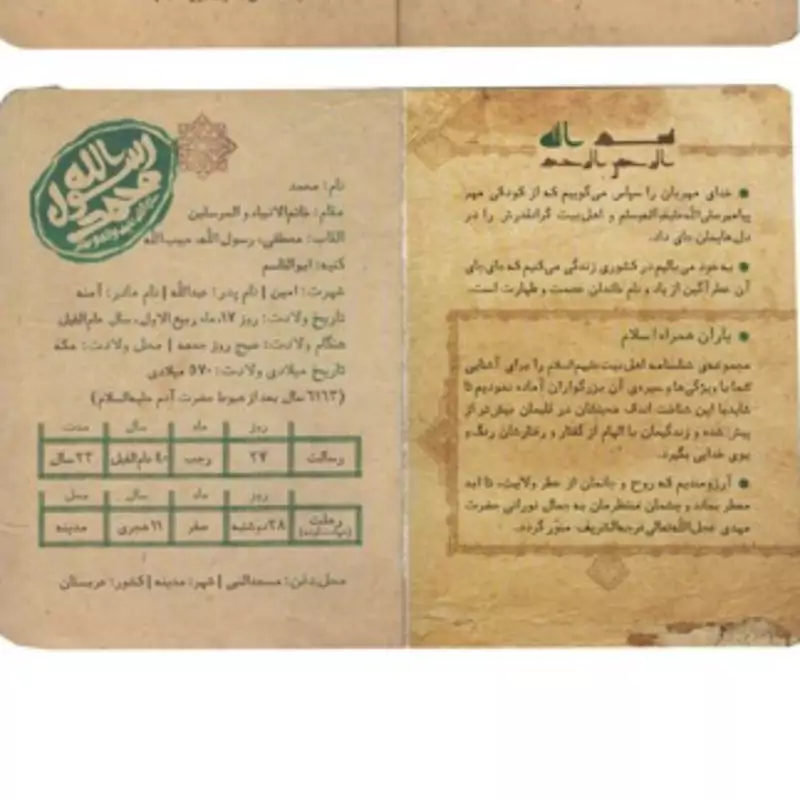 بسم الله
الرحمن الرحیم
خدای مهربان را سپاس می‌گوییم که از کودکی مهر
پیامبر صلی‌الله‌علیه‌وآله‌وسلم و اهل‌بیت گرانقدرش را در
دل‌هایمان جای داد.
به خود می‌بالیم در کشوری زندگی می‌کنیم که جای‌جای
آن عطرآگین از یاد و نام خاندان عصمت و طهارت است.
یاران همراه اسلام
مجموعه‌ی شناسنامه اهل‌بیت علیهم‌السلام را برای آشنایی
شما با ویژگی‌ها و سیره‌ی آن بزرگواران آماده نمودیم تا
شاید با این شناخت اندک محبتشان در قلبمان بیش‌تر از
پیش شده و زندگیمان با الهام از گفتار و رفتارشان رنگ و
بوی خدایی بگیرد.
آرزومندیم که روح و جانمان از عطر ولایت، تا ابد
معطر بماند و چشمان منتظرمان به جمال نورانی حضرت
مهدی عجل‌الله‌تعالی‌فرجه‌الشریف، منوّر گردد.
محمد رسول الله
نام: محمد
مقام: خاتم‌الانبیاء و المرسلین
القاب: مصطفی، رسول الله، حبیب‌الله
کنیه: ابوالقاسم
شهرت: امین | نام پدر: عبدالله | نام مادر: آمنه
تاریخ ولادت: روز ۱۷، ماه ربیع الاول، سال عام‌الفیل
هنگام ولادت: صبح روز جمعه | محل ولادت: مکه
تاریخ میلادی ولادت: ۵۷۰ میلادی
(۶۱۶۳ سال بعد از هبوط حضرت آدم علیه‌السلام)
روز ماه سال مدت
رسالت ۲۷ رجب ۴۰ عام‌الفیل ۲۳ سال
روز ماه سال محل
رحلت ۲۸ دوشنبه صفر ۱۱ هجری مدینه
محل دفن: مسجدالنبی | شهر: مدینه | کشور: عربستان